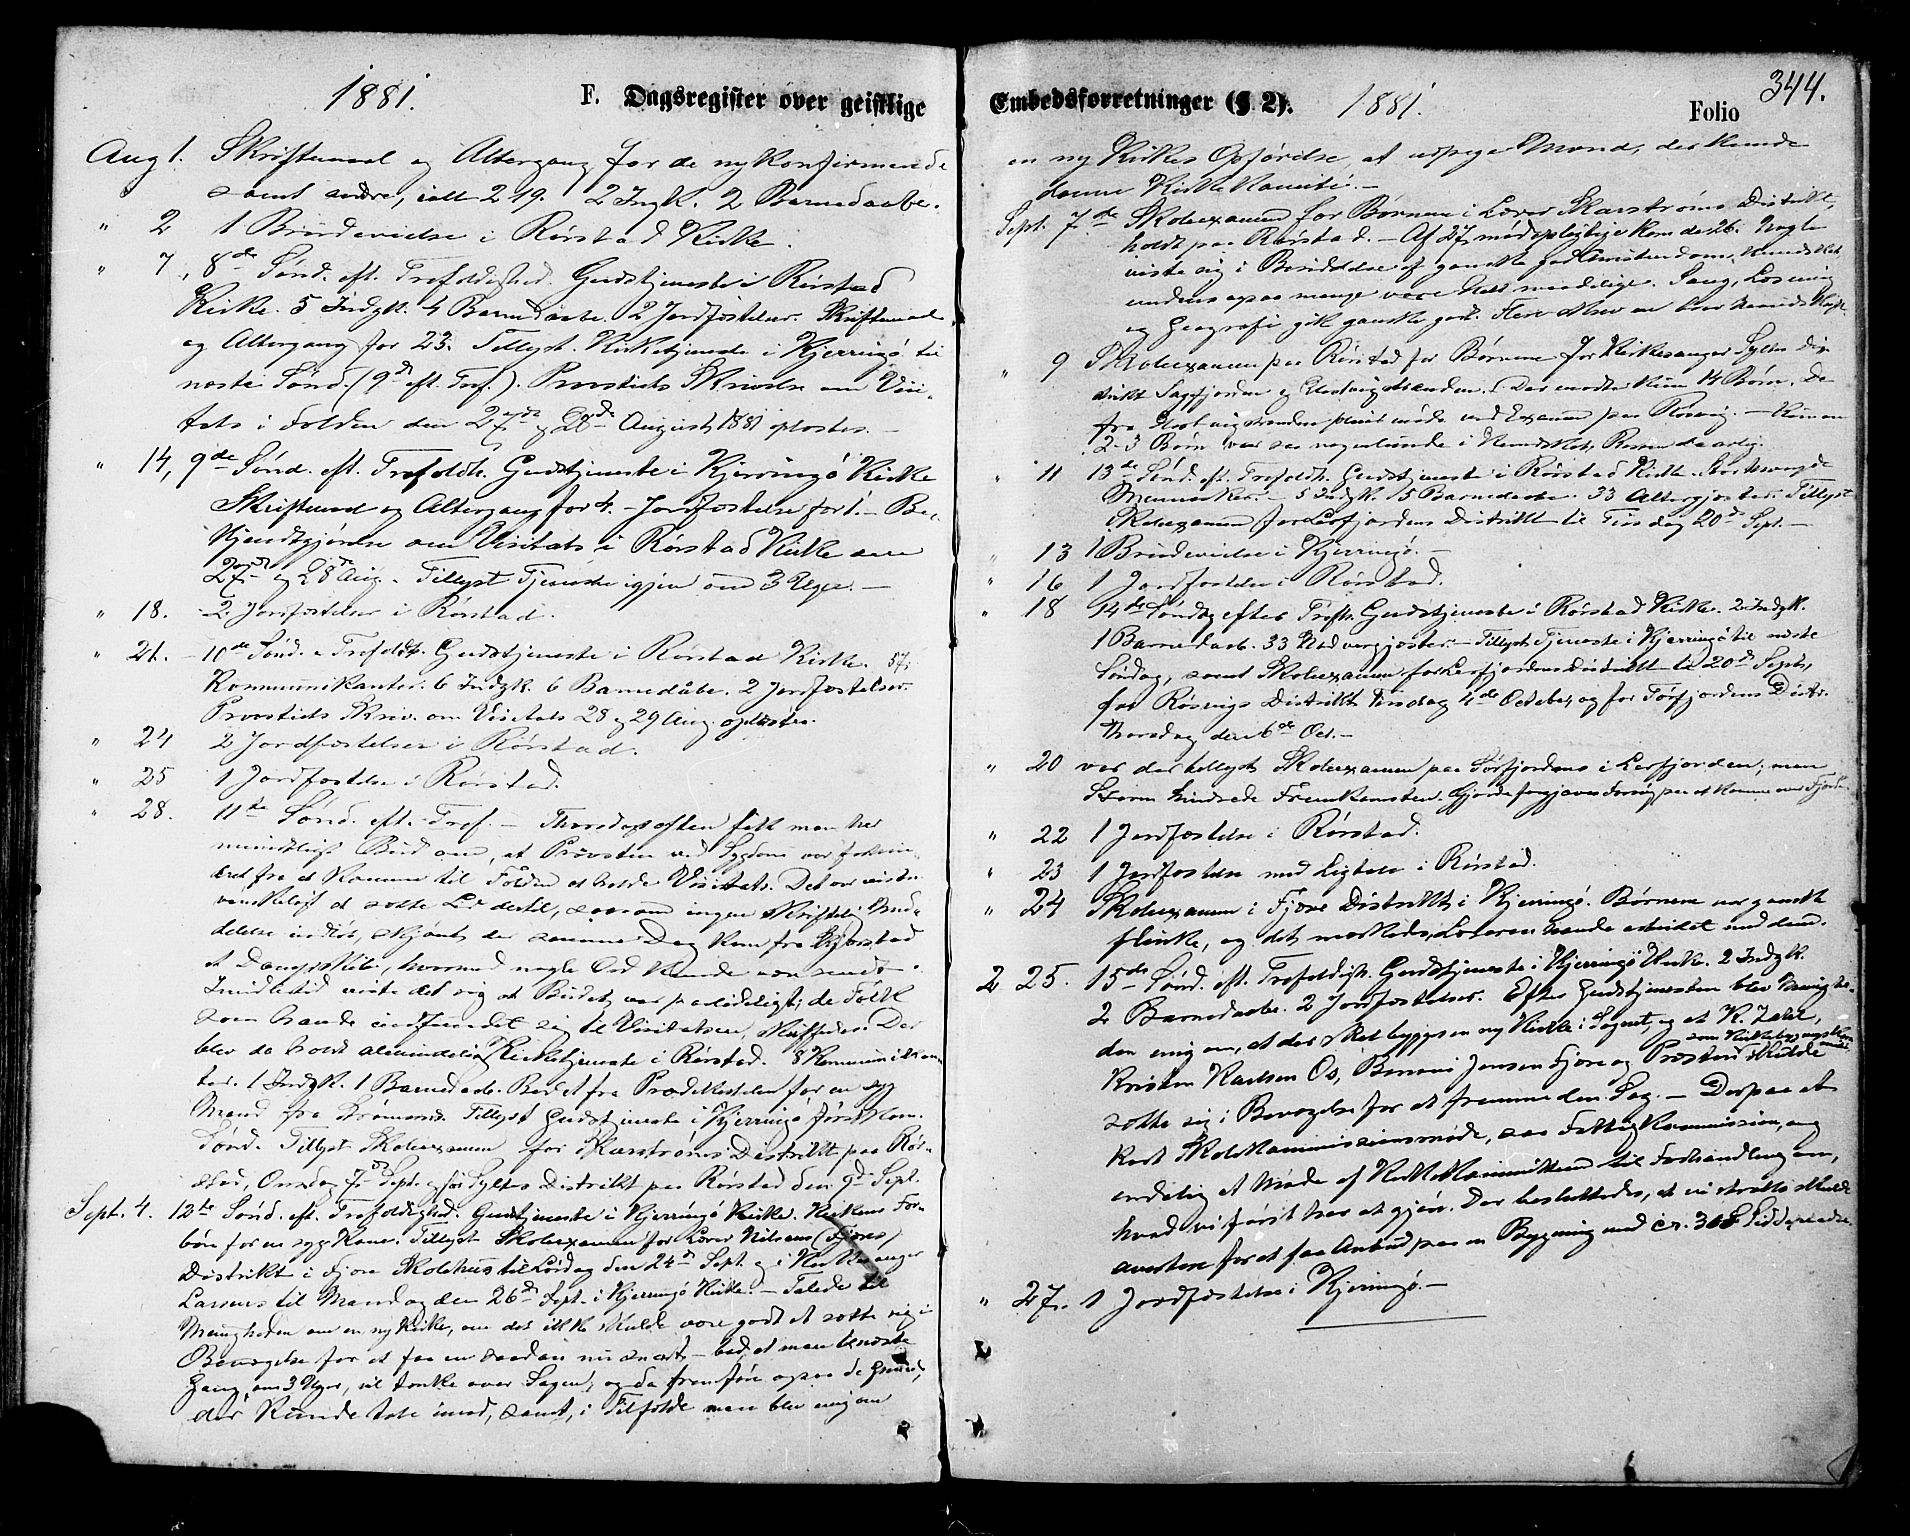 1881.
F. Dagsregister over geistlige
Aug 1. Skriftemaal og Altergang for de ny Konfirmerede
samt andre, ialt 219. 2 Ingk. 2 Barnedaabe.
" 2 1 Brudevielse i Rørstad Kirke.
" 7, 8de Sønd. eft. Trefoldighed. Gudstjeneste i Rørstad
Kirke. 5 Indgk. 4 Barnedaabe. 2 Jordfæstelser. Skriftemaal
og Altergang for 23. Tillyst Kirketjeneste i Kjerringø til
næste Sønd. (9de eft. Tref.). Provstiets Skrivelse om Visi-
tats i Folden den 27de og 28de August 1881 oplæstes.
" 14, 9de Sønd. eft. Trefoldh. Gudstjeneste i Kjerringø Kirke
Skriftemaal og Altergang for 4. - Jordfæstelse for 1. - Be-
kjendtgjørelse om Visitats i Rørstad Kirke den
27de og 28de Aug. - Tillyst Tjeneste igjen om 3 Uger. -
" 18. 2 Jordfæstelser i Rørstad.
" 21. - 10de Sønd. e. Trefoldh. Gudstjeneste i Rørstad Kirke. 57
Kommunikanter. 6 Indgk. 6 Barnedåbe. 2 Jordfæstelser.
Provstiets Skriv. om Visitats 28 og 29 Aug. oplæstes.
" 24 2 Jordfæstelser i Rørstad.
" 25 1 Jordfæstelse i Rørstad.
" 28. 11te Sønd. eft. Tref. - Thorsdagsaften fik man her
mundtligt Bud om, at Provsten ved Sygdom var forhin-
dret fra at komme til Folden at holde Visitats. Det var
vanskeligt at sætte Lid dertil, saasom ingen skriftlig Med-
delelse indløb, skjønt der samme Dag kom fra
et Dampskib, hvormed nogle Ord kunde være sendt.
Imidlertid viste det sig at Budet var paalideligt; de Folk
som havde indfundet sig til Visitatsen, skuffedes. Der
blev da holdt almindelig Kirketjeneste i Rørstad. 8 Kommunikan-
ter. 1 Indgk. 1 Barnedaab. Bedet fra Prædikestolen for en syg
Mand fra. Tillyst Gudstjeneste i Kjerringø førstkom.
Sønd. Tillyst Skolexamen for Skarstrøms Distrikt paa Rør-
stad, Onsdag 7de Sept. og for Syltes Distrikt paa Rørstad den 9de Sept.
Sept. 4. 12te Sønd. eft. Trefoldighed. Gudstjeneste i Kjerringø Kirke. Kirkens For-
bøn for en syg Kone. Tillyst Skolexamen for Lærer Nilsens (Fjøres)
Distrikt i Fjøre Skolehus til Lørdag den 24de Sept. og i Kirkesanger
Larsens til Mandag den 26de Sept. i Kjerringø Kirke. - Talede til
Menigheden om en ny Kirke, om det ikke skulde være godt at sætte sig i
Bevægelse for at faa en saadan nu snart - bad, at man til næste
Gang, om 3 Uger, vil tænke over Sagen, og da fremføre ogsaa de Grunde,
der kunde tale imod, samt, i Tilfælde man blev enig om
Embedsforretninger (§ 2). 1881. Folio 344.
en ny Kirkes Opførelse, at udpege Mænd, der kunde
danne Kirke Komité. -
Sept. 7de Skolexamen for Børnene i Lærer Skarstrøms Distrikt,
holdt paa Rørstad. - Af 27 mødepligtige kom de 26. Nogle
viste sig i Besiddelse af ganske god Kristendoms Kundskab,
medens ogsaa mange vare maadelige. Sang, Læsning
og Geografi gik ganske godt.
" 9 Skolexamen paa Rørstad for Børnene for Kirkesanger Syltes Di-
strikt. Der mødte kun 14 Børn. De
fra møde ved Examen paa Røsvig. - Kun en
2-3 Børn var saa nogenlunde i Kundskab, Resten daarlig.
" 11 13de Sønd. eft. Trefoldh. Gudstjeneste i Rørstad Kirke.
Mennesker. - 5 Indgk. 5 Barnedaabe. 33 Altergjæster. Tillyst
Skolexamen for Lerfjordens Distrikt til Tirsdag 20de Sept. -
" 13 1 Brudevielse i Kjerringø. -
" 16 1 Jordfæstelse i Rørstad.
" 18 14de Søndag efter Trefh. Gudstjeneste i Rørstad Kirke. 2 Indgk.
1 Barnedaab. 33 Nadvergjæster. - Tillyst Tjeneste i Kjerringø til næste
Søndag, samt Skolexamen for Lerfjordens Distrikt til 20de Sept,
for Røsvigs Distrikt Tirsdag 4de October, og for Tørfjordens Distr.
Thorsdag den 6te Oct. -
" 20 var der tillyst Skolexamen paa i Lerfjorden; men
Storm hindrede Fremkomsten. Gjorde forgjæves Forsøg paa at komme over Fjorden.
" 22 1 Jordfæstelse i Rørstad.
" 23 1 Jordfæstelse med Ligtale i Rørstad.
" 24 Skolexamen i Fjøre Distrikt i Kjerringø. Børnene var ganske
flinke, og det mærkedes, Læreren havde arbeidet med dem.
" 25. 15de Sønd. eft. Trefoldigh. Gudstjeneste i Kjerringø Kirke. 2 Indgk.
2 Barnedaabe. 2 Jordfæstelser. Efter Gudstjenesten blev Menighe-
den enig om, at der skal bygges en ny Kirke i Sognet, og at K. Zahl,
Kristen Karlsen Os, Benoni Jensen Fjøre og Præsten som Kirkebygningskom. skulde
sætte sig i Bevægelse for at fremme den Sag. - Derpaa et
kort Skolekommissionsmøde, saa Fattigkommission, og
endelig et Møde af Kirkekommitteen til Forhandling om,
hvad vi først har at gjøre. Der besluttedes, at vi skulde
avertere for at faa Anbud paa en Bygning med cr. 300 Siddepladse.
" 27. 1 Jordfæstelse i Kjerringø. -